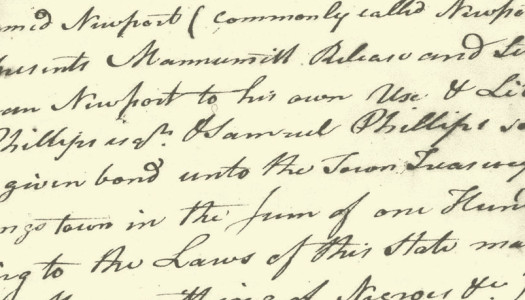 named Newport (commonly called Newpo
presents Mannumitt Release and Li
an Newport to his own Use & Li
Phillips esqr. & Samuel Phillips
given bond unto the Town Treasurer
ngstown in the sum of one Hun
ng to the Laws of this State ma
of Negroes &c